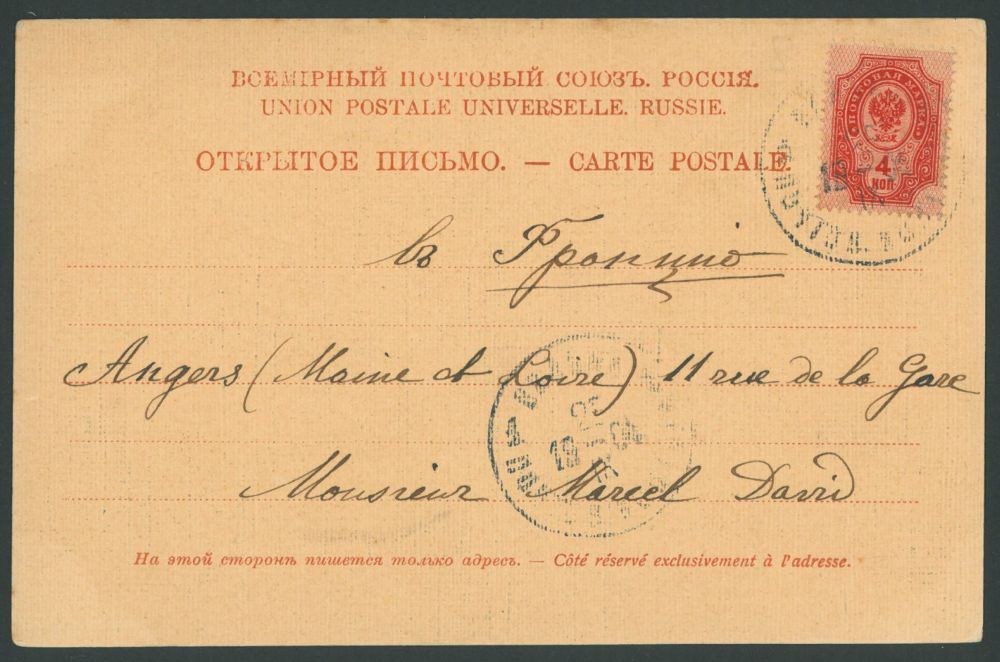 ВСЕМІРНЫЙ ПОЧТОВЫЙ СОЮЗЪ. РОССІЯ.
UNION POSTALE UNIVERSELLE. RUSSIE.
ОТКРЫТОЕ ПИСЬМО. — CARTE POSTALE.
ПОЧТОВАЯ МАРКА
4
КОП
въ Францію
Angers (Maine et Loire) 11 rue de la Gare
Monsieur Marcel David
На этой сторонѣ пишется только адресъ. — Côté réservé exclusivement à l'adresse.